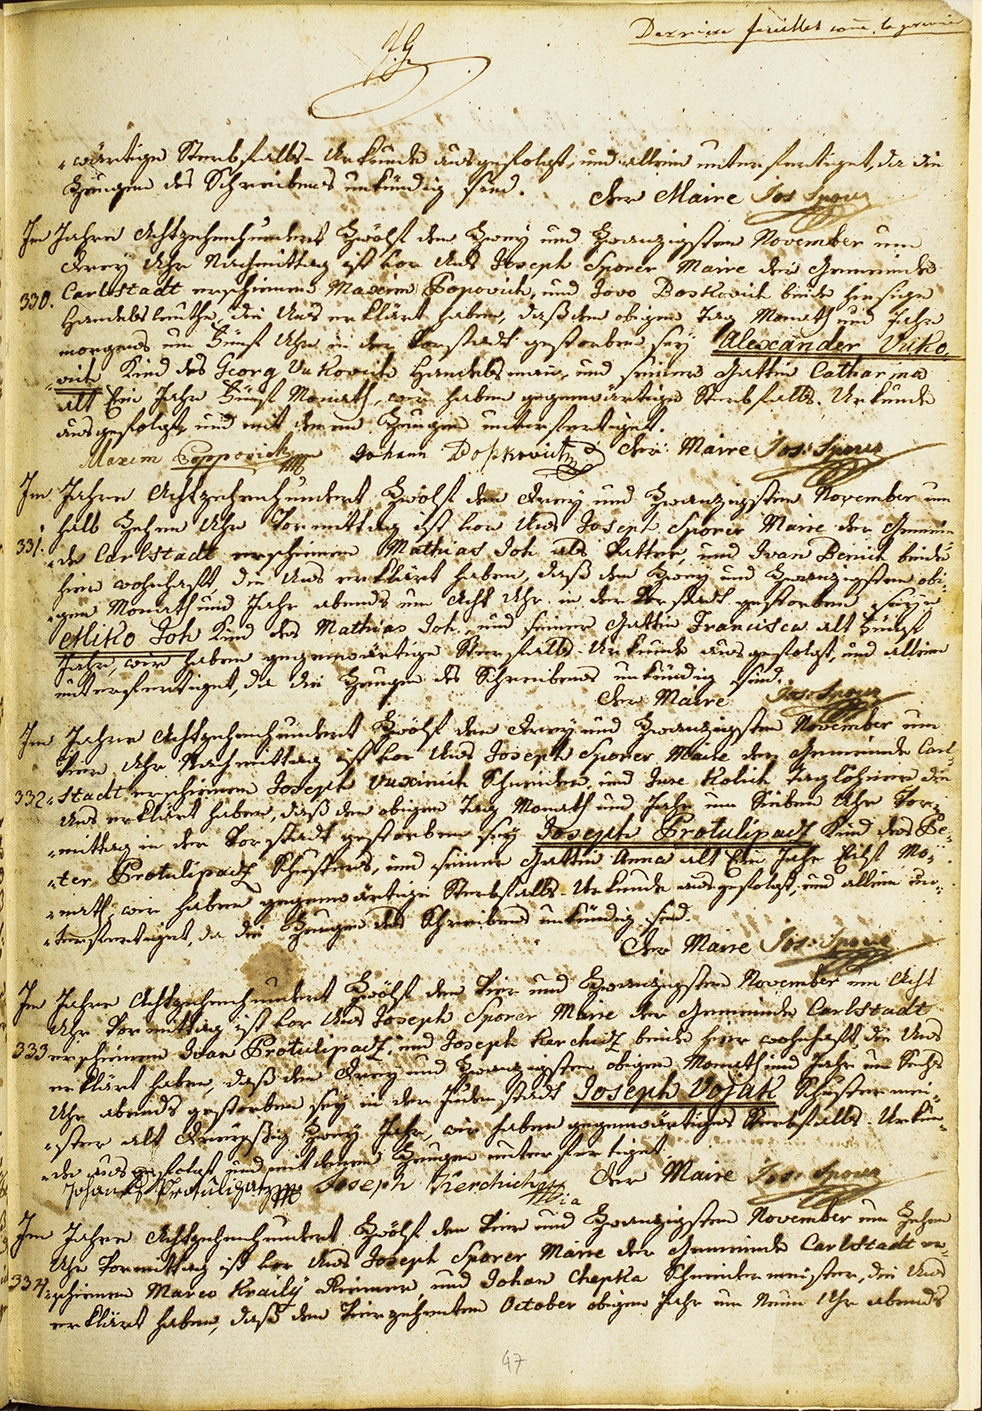 Dernier feuillet
-wärtige Sterbfalls-Urkunde ausgefolgt, und allein unterfertiget, da die
Zeugen des Schreibens unkündig sind. Der Maire Jos: Sporer
Im Jahre Achtzehenhundert Zwölf den Zwey und Zwanzigsten November um
Drey Uhr Nachmittag ist vor Uns Joseph Sporer Maire der Gemeinde
330. Carlstadt erschienen Maxim Popovich, und Jovo Boskovich beide hiesige
Handelsleuthe, die Uns erklärt haben, daß den obigen Tag Monath und Jahr
morgens um Fünf Uhr in der Vorstadt gestorben sey Alexander Vuko-
-vich, Kind des Georg Vukovich Handelsmann, und seiner Gattin Catharina
alt Ein Jahr Fünf Monath, wir haben gegenwärtige Sterbfalls-Urkunde
ausgefolgt, und mit denen Zeugen unterfertiget.
Maxim Poppovich Johann Doskovich Der Maire Jos: Sporer
Im Jahre Achtzehenhundert Zwölf den Drey und Zwanzigsten November um
halb Zehen Uhr Vormittag ist vor Uns Joseph Sporer Maire der Gemein-
331. -de Carlstadt erschienen Mathias Joh als Vatter, und Ivan Benich beide
hier wohnhaft, die Uns erklärt haben, daß den Zwey und Zwanzigsten obi-
-gen Monath und Jahr abends um Acht Uhr in der Vorstadt gestorben seye
Miko Joh Kind des Mathias Joh, und seiner Gattin Francisca alt Fünf
Jahr, wir haben gegenwärtige Sterbfalls-Urkunde ausgefolgt, und allein
unterfertiget, da die Zeugen des Schreibens unkündig sind.
Der Maire Jos: Sporer
Im Jahre Achtzehenhundert Zwölf den Drey und Zwanzigsten November um
Vier Uhr Nachmittag ist vor Uns Joseph Sporer Maire der Gemeinde Carl-
332. -stadt erschienen Joseph Vuxinich Schneider, und Jure Kolich Taglöhner die
Uns erklärt haben, daß den obigen Tag Monath und Jahr um Sieben Uhr Vor-
-mittag in der Vorstadt gestorben sey Joseph Protulipacz Kind des Pe-
-ter Protulipacz Schusters, und seiner Gattin Anna alt Ein Jahr Eilf Mo-
-nath, wir haben gegenwärtige Sterbfalls-Urkunde ausgefolgt, und allein un-
-terfertiget, da die Zeugen des Schreibens unkündig sind.
Der Maire Jos: Sporer
Im Jahre Achtzehenhundert Zwölf den Vier und Zwanzigsten November um Acht
Uhr Vormittag ist vor Uns Joseph Sporer Maire der Gemeinde Carlstadt
333 erschienen Ivan Protulipacz, und Joseph Kerchich beide hier wohnhaft, die Uns
erklärt haben, daß den Drey und Zwanzigsten obigen Monath und Jahr um Sechs
Uhr abends gestorben sey in der Judenstadt Joseph Vojak Schustermei-
-ster alt Dreyßig Zwey Jahr, wir haben gegenwärtiges Sterbfalls-Urkun-
-de ausgefolgt, und mit denen Zeugen unterfertiget.
Johann Protulipacz Joseph Kerchich Der Maire Jos: Sporer
Im Jahre Achtzehenhundert Zwölf den Vier und Zwanzigsten November um Zehen
Uhr Vormittag ist vor Uns Joseph Sporer Maire der Gemeinde Carlstadt er-
334. -schienen Marco Kraily Riemer, und Johan Chapka Schneidermeister, die Uns
erklärt haben, daß den Vierzehenten October obigen Jahr um Neun Uhr abends
47